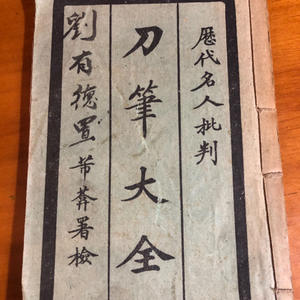 歷代名人批判
刀筆大全
劉有德置 芾莽署檢